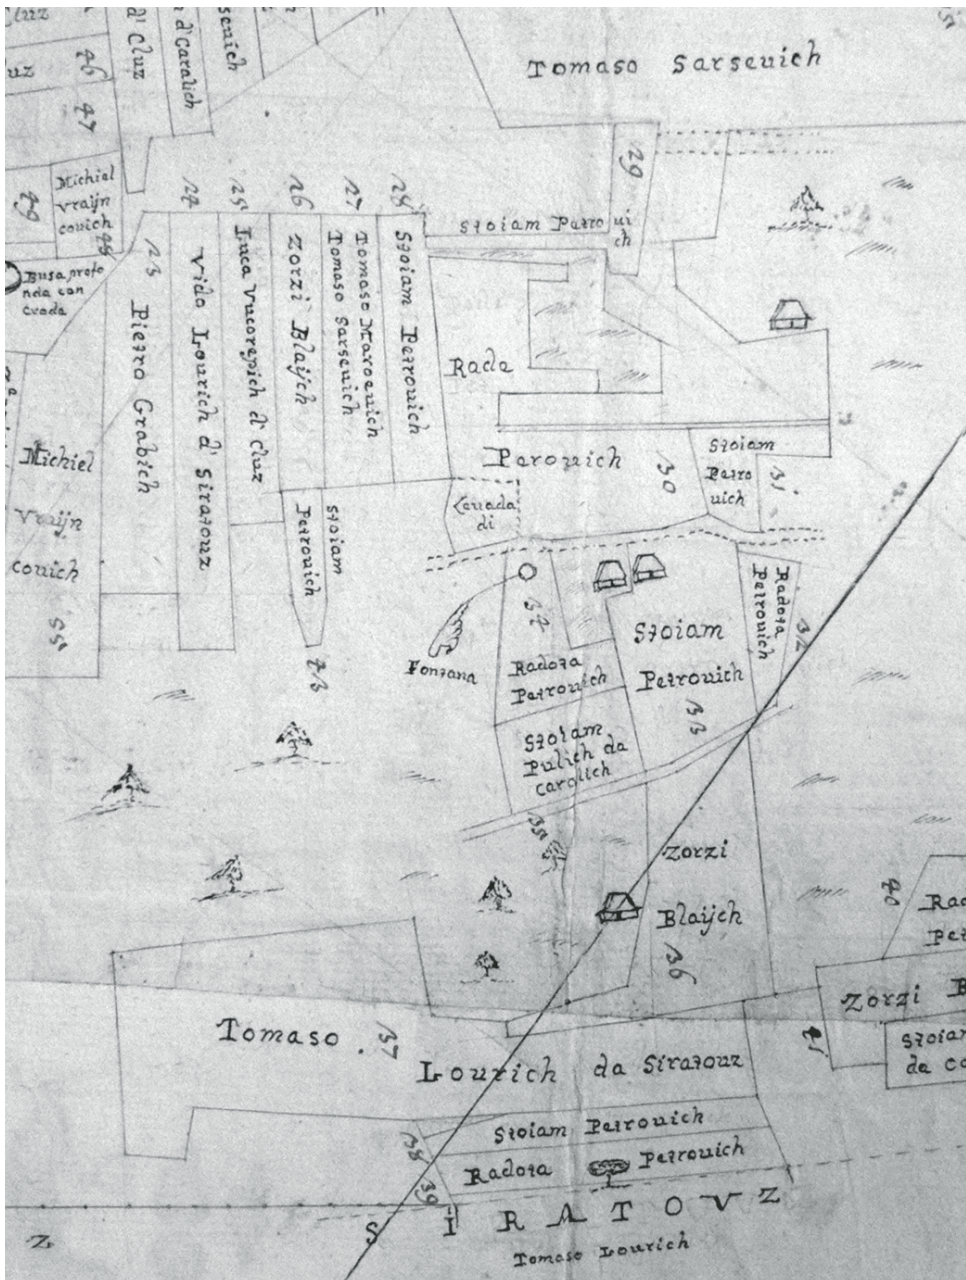 Tomaso Sarseuich
d' Cluz
d' Caralich
seuich
46
47
49
Michiel
vraijn
couich
48
29
Stoiam Petroui
ch
Busa profo
nda con
24
25
26
27
28
23
Pietro Grabich
Vido Lourich d' Siratouz
Luca Vucorepich d' Cluz
Zorzi Blaijch
Tomaso Sarseuich
Tomaso Marceuich
Stoiam Petrouich
Rada
Perouich
30
Stoiam
Petro
uich
31
Michiel
Vraijn
couich
55
Stoiam
Petrouich
43
Leuada
di
Fontana
34
Radota
Petrouich
Stoiam
Petrouich
33
Radota
Petrouich
32
Stoiam
Pulich da
Carolich
35
Zorzi
Blaijch
36
40
Rad
Pet
Zorzi B
41
Stoiam
da Ca
Tomaso
37
Lourich da Siratouz
38
Stoiam Petrouich
39
Radota Petrouich
SIRATOVZ
Tomaso Lourich
Z